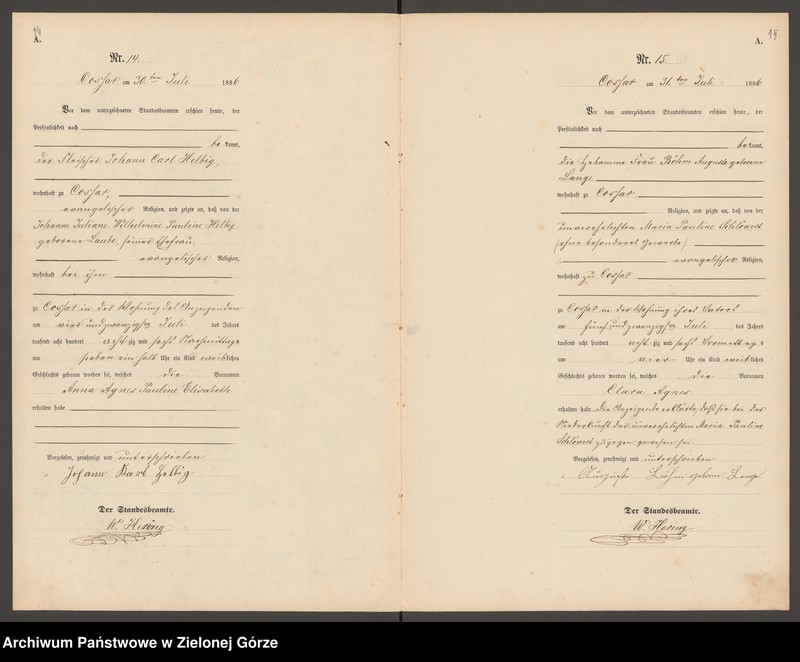 14
A.
Nr. 14.
Cossar am 30. ten Juli 1886
Vor dem unterzeichneten Standesbeamten erschien heute, der
Persönlichkeit nach
be kannt,
der Fleischer Johann Carl Helbig,
wohnhaft zu Cossar,
evangelischer Religion, und zeigte an, daß von der
Johanne Juliane Wilhelmine Pauline Helbig
geborene Laube, seiner Ehefrau,
evangelischer Religion,
wohnhaft bei ihm
zu Cossar in der Wohnung des Anzeigenden
am vier und zwanzigsten Juli des Jahres
tausend acht hundert acht zig und sechs Nachmittags
um sieben ein halb Uhr ein Kind weiblichen
Geschlechts geboren worden sei, welches die Vornamen
Anna Agnes Pauline Elisabeth
erhalten habe
Vorgelesen, genehmigt und unterschrieben
Johann Karl Helbig
Der Standesbeamte.
W. Hering
15
A.
Nr. 15.
Cossar am 31. ten Juli 1886
Vor dem unterzeichneten Standesbeamten erschien heute, der
Persönlichkeit nach
be kannt,
die Hebamme Frau Böhm Auguste geborene
Lange
wohnhaft zu Cossar
Religion, und zeigte an, daß von der
unverehelichten Maria Pauline Schlöncs
(ohne besonderes Gewerbe)
evangelischer Religion,
wohnhaft zu Cossar
zu Cossar in der Wohnung ihres Vaters
am fünf und zwanzigsten Juli des Jahres
tausend acht hundert acht zig und sechs Vormittags
um vier Uhr ein Kind weiblichen
Geschlechts geboren worden sei, welches die Vornamen
Clara Agnes
erhalten habe. Die Anzeigende erklärte, daß sie bei der
Niederkunft der unverehelichten Maria Pauline
zugegen gewesen sei.
Vorgelesen, genehmigt und unterschrieben
Auguste Böhm geborne Lange
Der Standesbeamte.
W. Hering
Archiwum Państwowe w Zielonej Górze